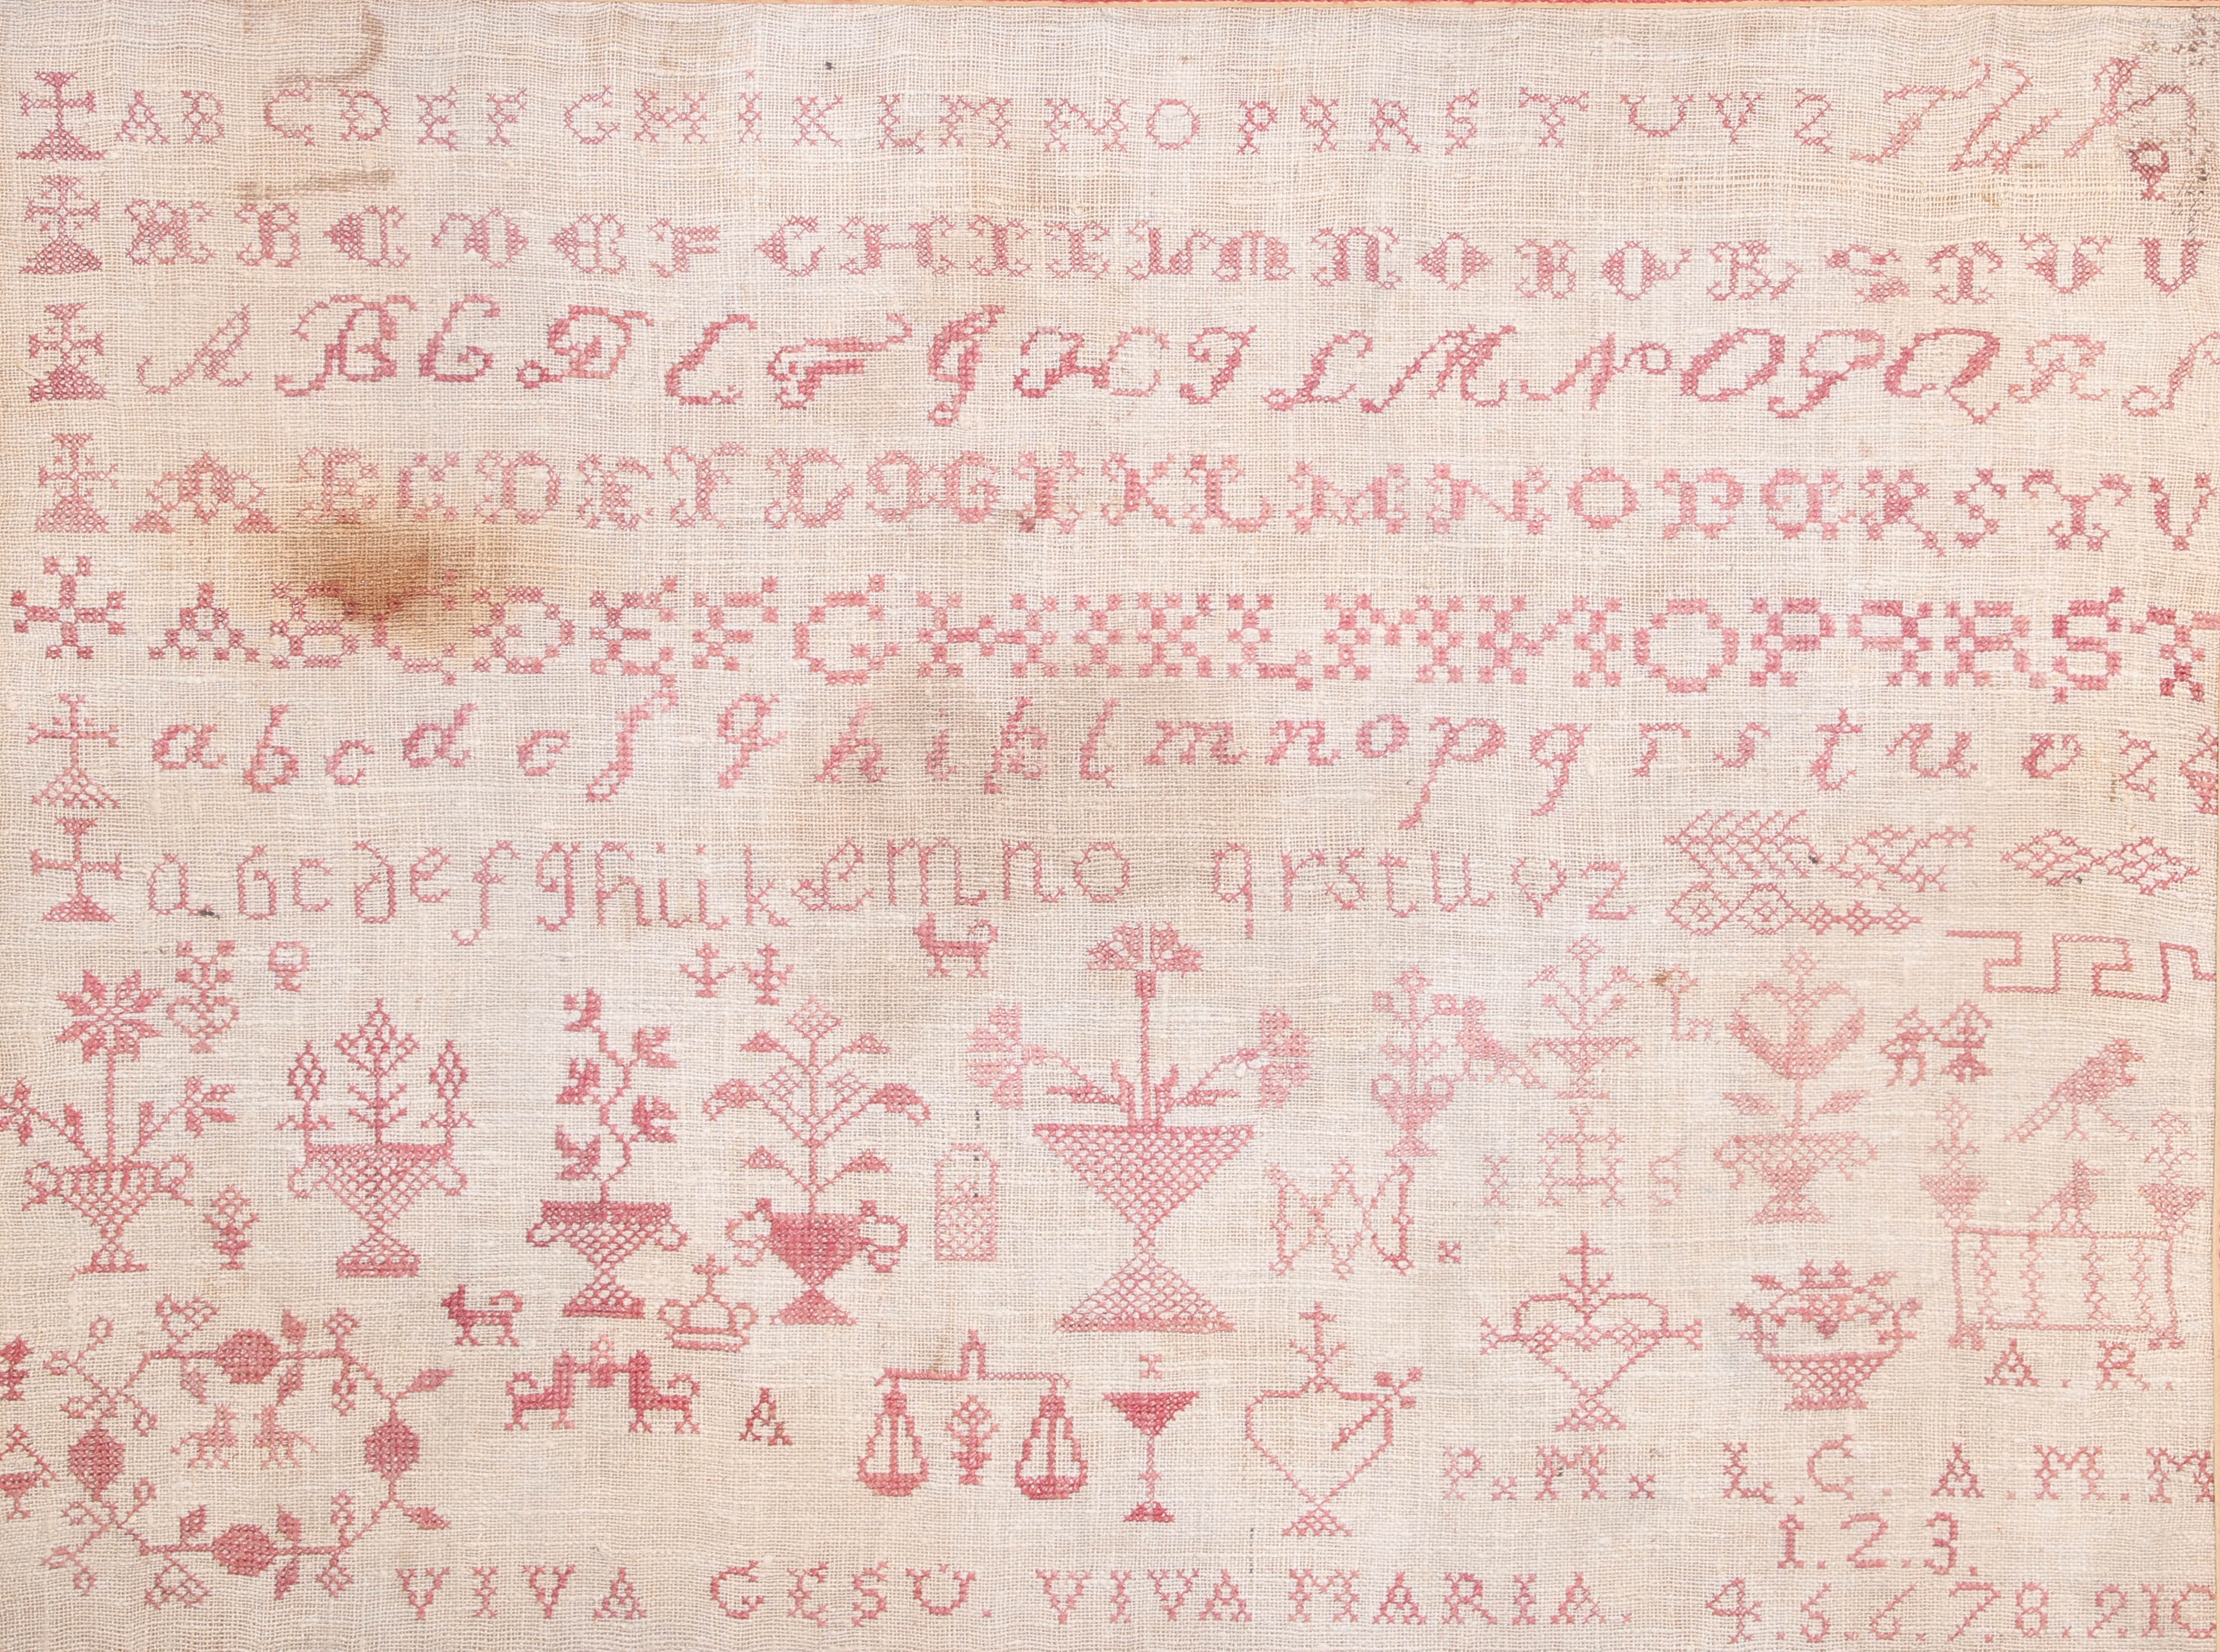 A B C D E F G H I K L M N O P q R S T U V Z T U
A B C D E F G H I K L M N O P Q R S T V U
A B C D E F G H I L M N O P Q R S
A B C D E F G I K L M N O P Q R S T V
A B C D E F G H I K L M N O P q R S T
a b c d e f g h i k l m n o p q r s t u v z
a b c d e f g h i i k l m n o q r s t u v z
M.
I H S
A
A. R.
P x M x L. C. A. M. M
1. 2. 3.
VIVA GESU. VIVA MARIA. 4. 5. 6. 7. 8. 9. 10